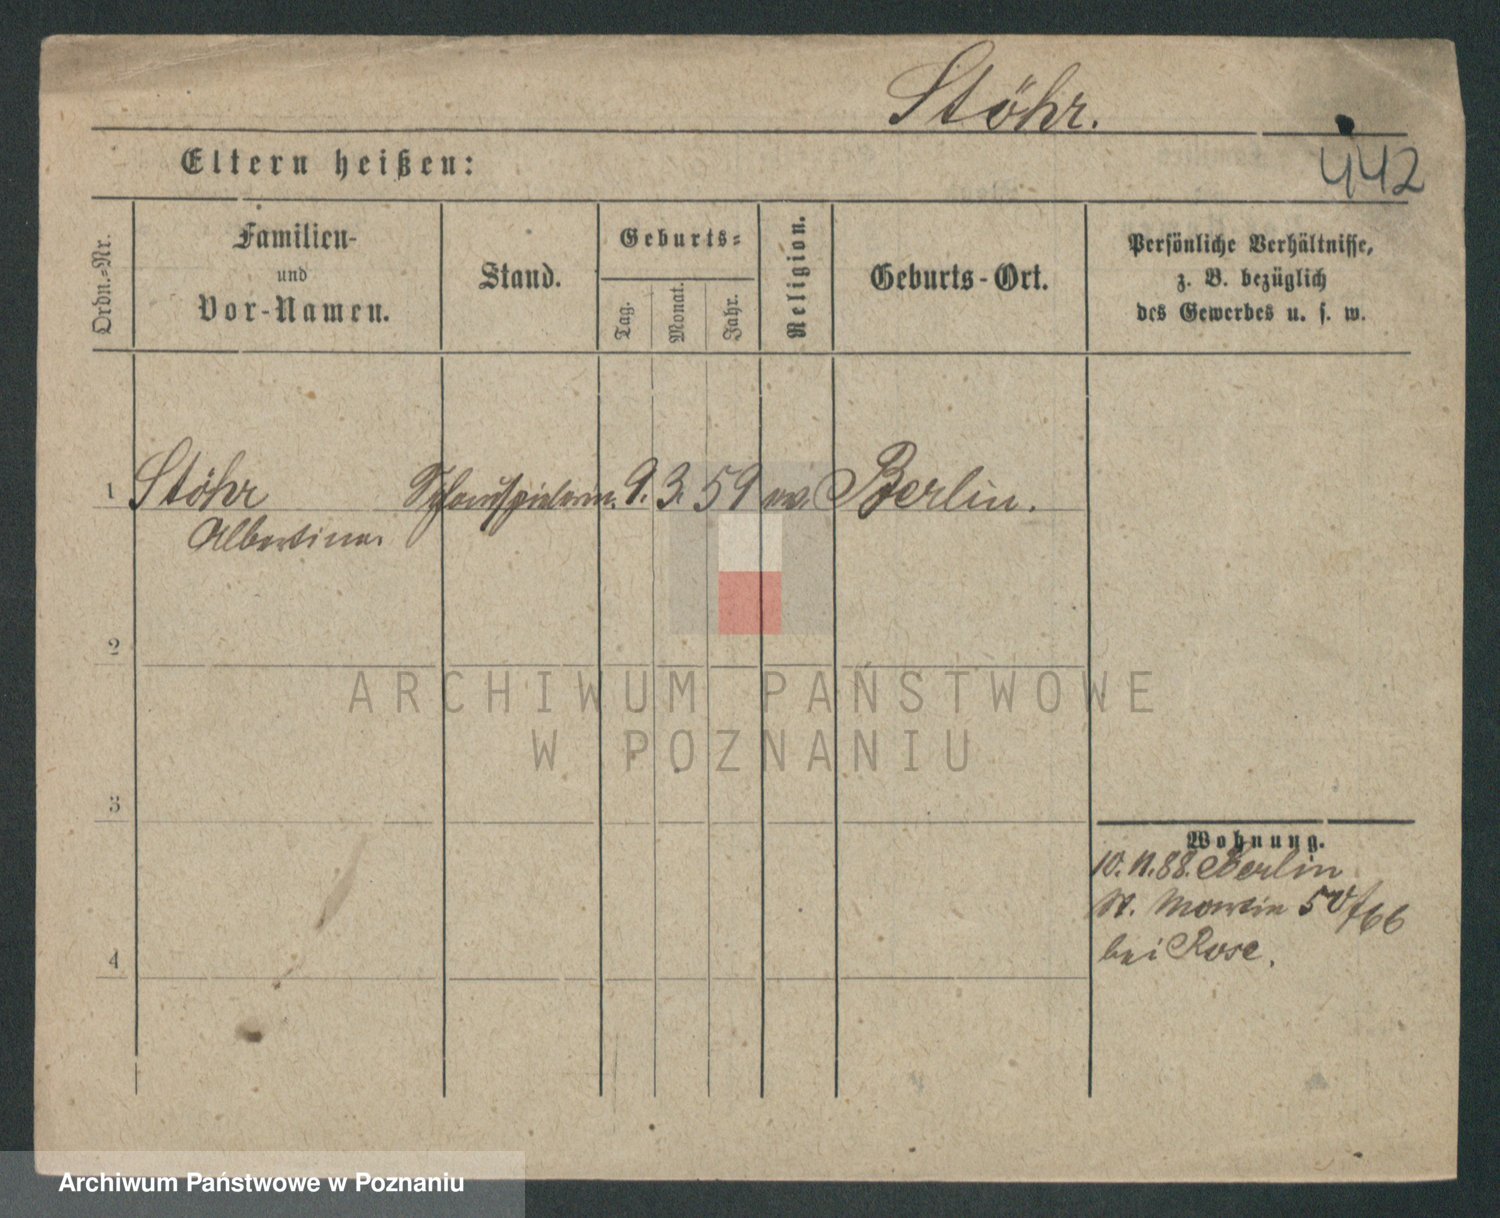 Stöhr.
442
Eltern heißen:
Ordn.-Nr.
Familien-
und
Vor-Namen.
Stand.
Geburts-
Tag.
Monat.
Jahr.
Religion.
Geburts-Ort.
Persönliche Verhältnisse,
z. B. bezüglich
des Gewerbes u. s. w.
1 Stöhr Schauspielerin. 9. 3. 59 ev. Berlin.
Albertine.
2
ARCHIWUM PAŃSTWOWE
W POZNANIU
3
Wohnung.
10. 11. 88. Berlin
St. Martin 50/66
bei Rose.
4
Archiwum Państwowe w Poznaniu